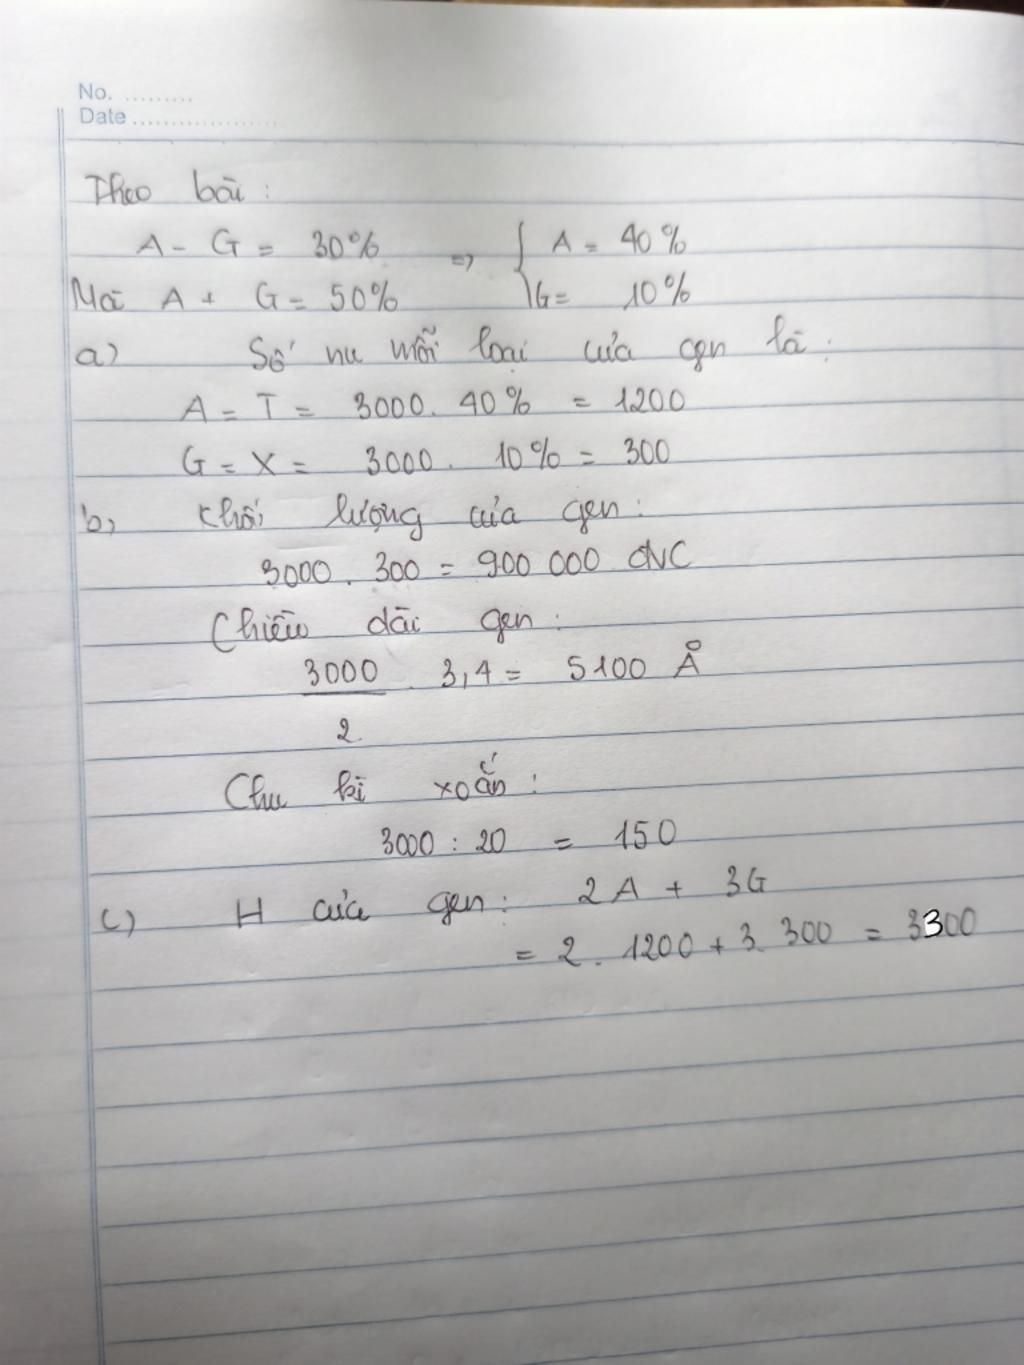 No. .........
Date ...................
Theo bài :
A - G = 30% => { A = 40%
Mà A + G = 50% G = 10%
a) Số nu mỗi loại của gen là :
A = T = 3000. 40% = 1200
G = X = 3000. 10% = 300
b) Khối lượng của gen :
3000. 300 = 900 000 đVC
Chiều dài gen :
3000
2 . 3,4 = 5100 Å
Chu kì xoắn :
3000 : 20 = 150
c) H của gen : 2A + 3G
= 2. 1200 + 3. 300 = 3300